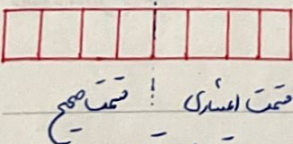 قسمت اعشاری قسمت صحیح